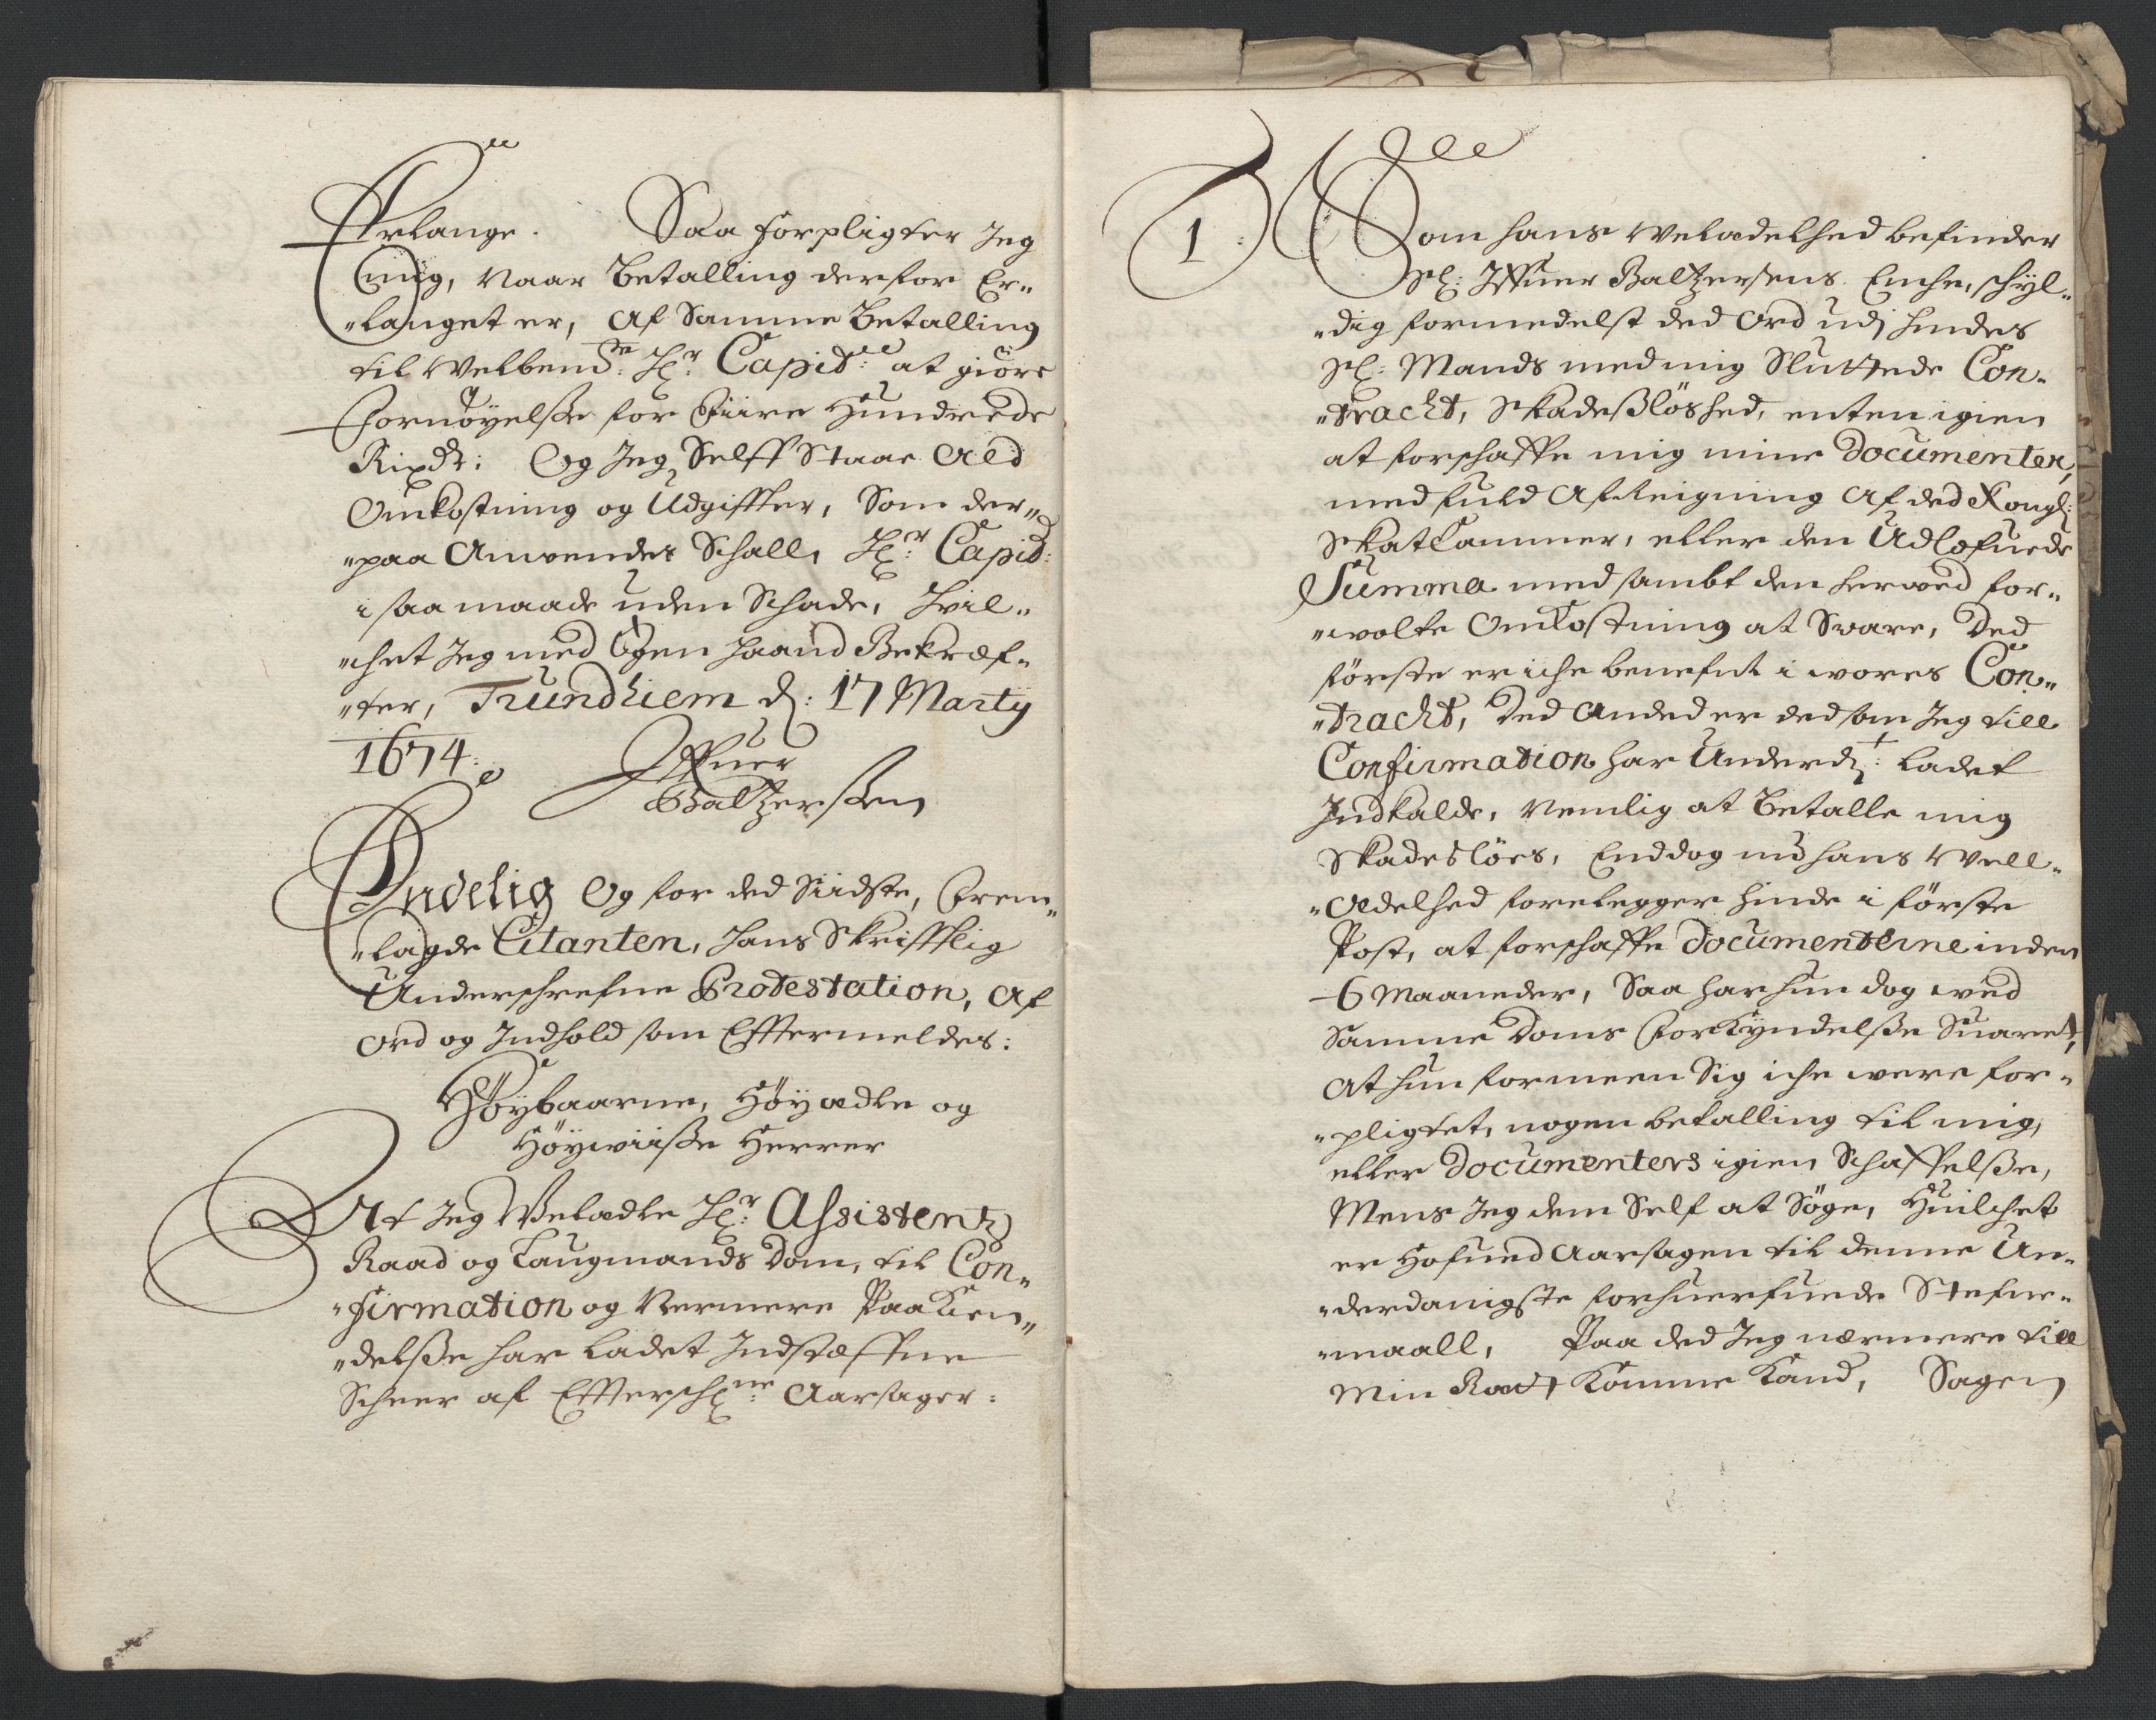 Erlange. Saa forpligter Jeg
mig, Naar Betalling derfor Er„
„langet er, Af Samme Betalling
til Welbem:te Hr: Capit: at giöre
Fornöyelße for Fiire Hundrede
Rixdr: Og Jeg Selff Staar Ald
Omkostning og Udgiffter, Som der„
„paa Anvendes Schall, Hr: Capid:
i saa maade uden Schade, Hvil„
„chet Jeg med Egen Haand Bekræf„
„ter, Trundhiem d: 17 Marty
1674: Iffuer
Baltzerßen
Endelig Og for ded Siidste, Frem„
„lagde Citanten, Hans Skrifftlig
Underschrefne Protestation, Af
Ord og Indhold som Efftermeldes:
Höybaarne, Höyædle og
Höywiiße Herrer
At Jeg Welædle Hr: Assistentz
Raad og Laugmands Dom, til Con„
„firmation og Nermere Paakien„
„delße har ladet Indstæffne
Scheer af Effterschr:ne Aarsager:
1: Som hans Welædelhed befinder
Sl: Iffuer Baltzersens Enche, schyl„
„dig formedelst ded Ord udj hendes
Sl: Mands med mig Sluttede Con„
„tracht, Skadeßlöshed, enten igien
at forschaffe mig mine Documenter,
med fuld Afreigning Af ded Kongl:
Skatkammer, eller den Udlofuede
Summa med sambt den herved for„
„wolte Omkostning at Svare, Ded
förste er iche benefnt i wores Con„
„tracht, Ded Anded er ded som Jeg till
Confirmation har Underd:t ladet
Indkalde, Nemlig at Betalle mig
Skadeslöes, Enddog nu hans Well„
„Ædelhed forelegger hinde i förste
Post, at forschaffe Documenterne inden
6 Maaneder, Saa har hun dog wed
Samme Doms Forkyndelße Suaret,
At hun formeen Sig iche were for„
„pligtet, nogen betalling til mig,
eller Documenters igien Schaffelße,
Mens Jeg dem Self at Söge, Huilchet
er Hofued Aarsagen til denne Un„
„derdanigste forhuerfuede Stefne„
„maall, Paa ded Jeg nærmere till
Min Rætt Komme Kand, Sagen